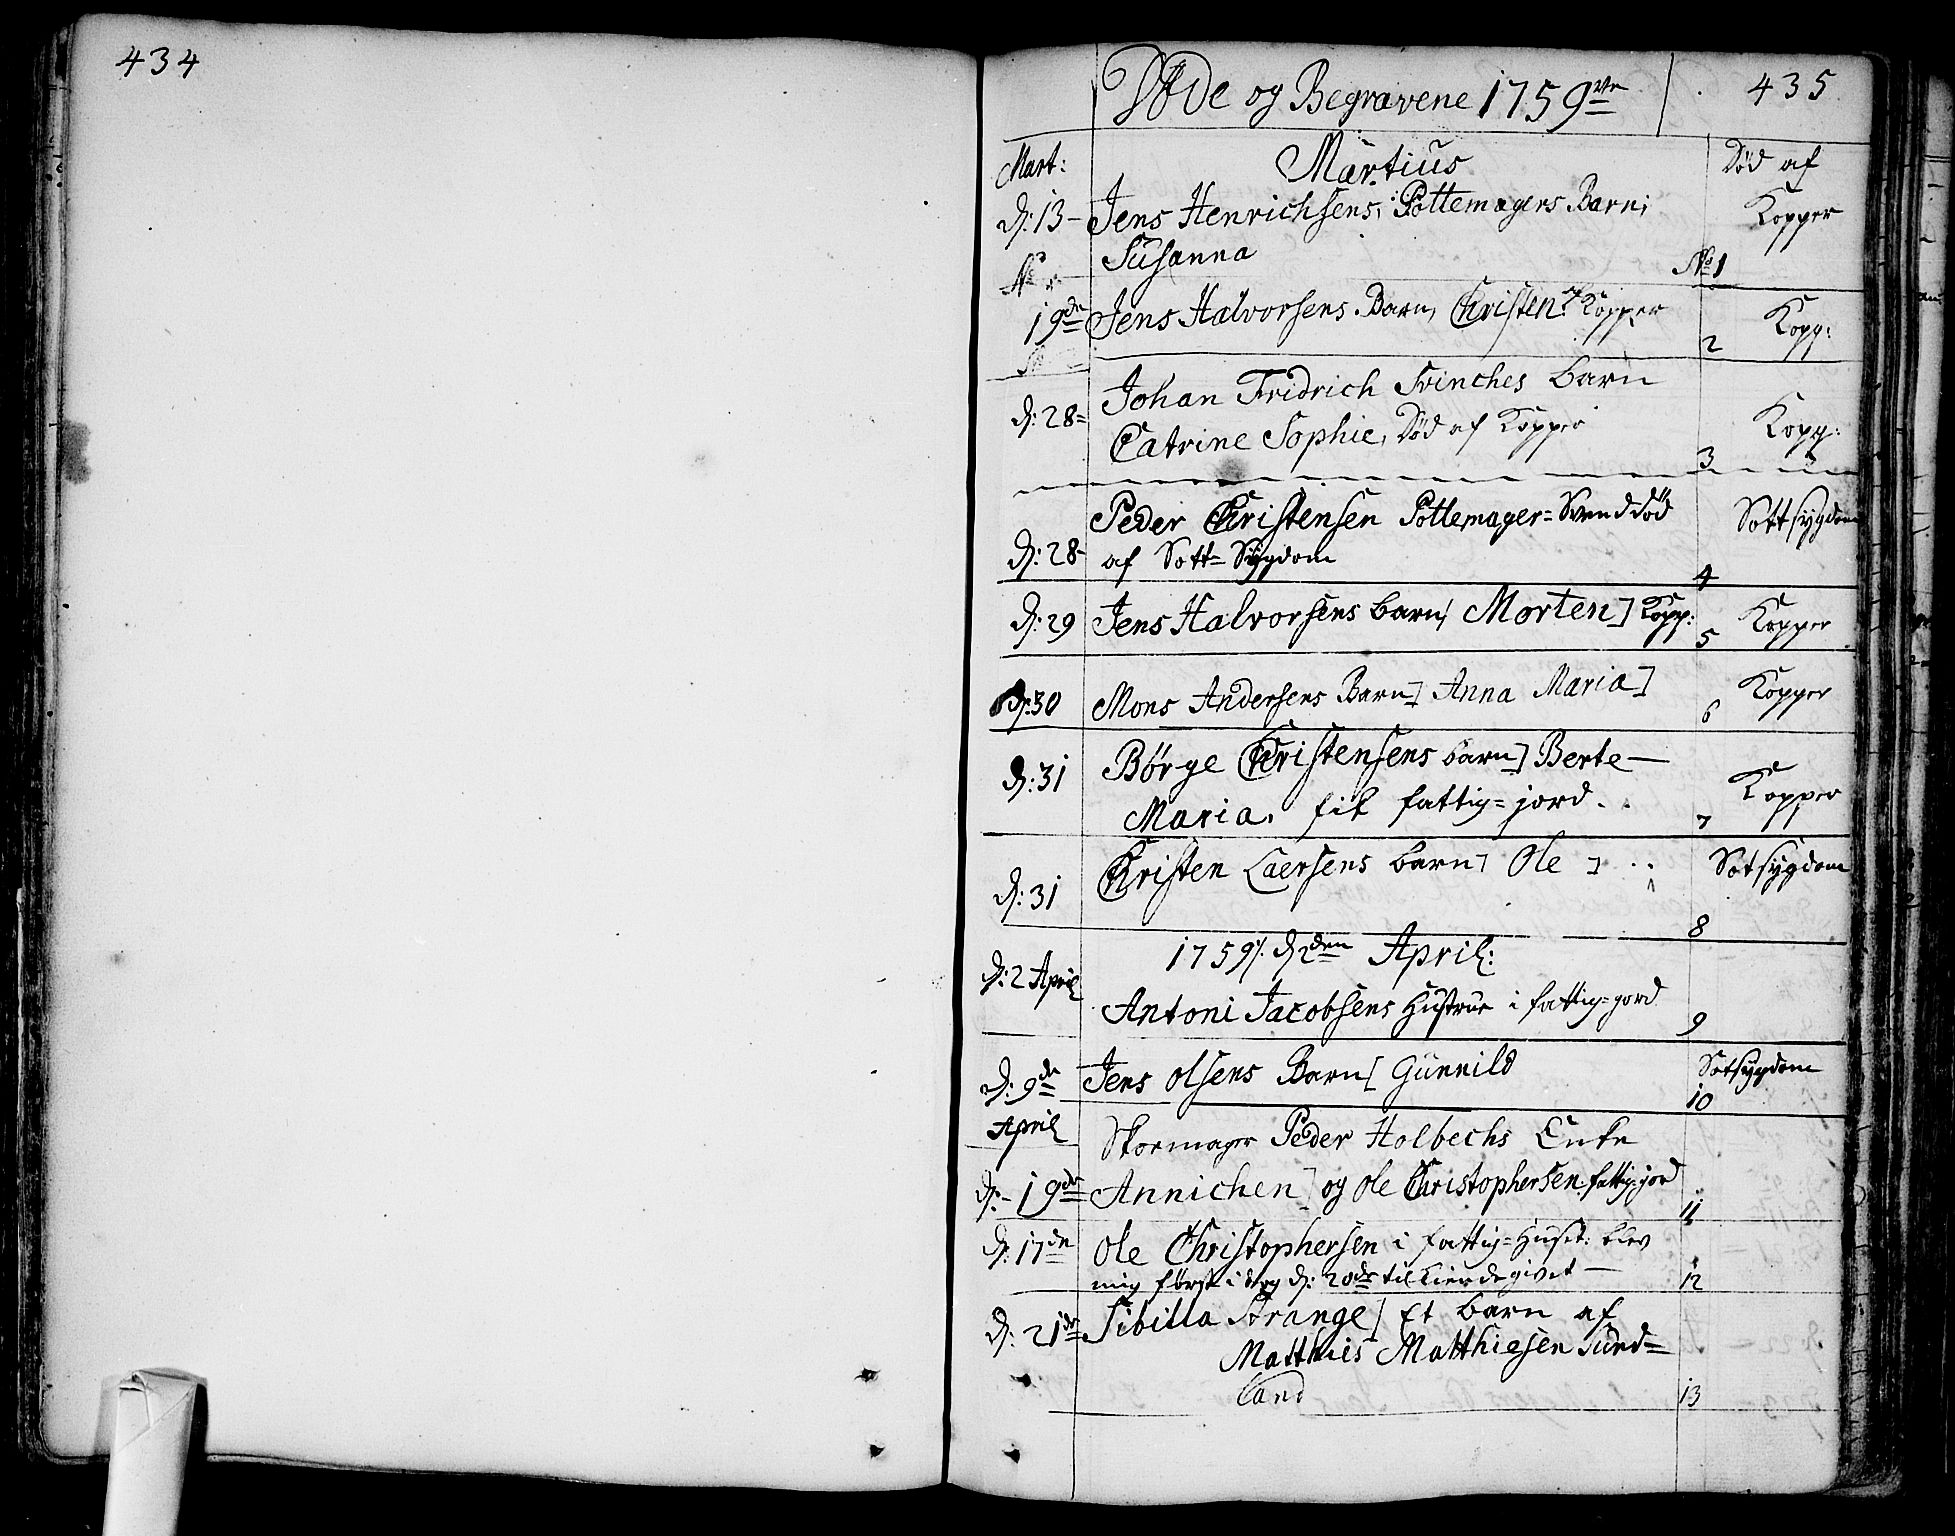 434
Døde og Begravene 1759ve
435
Mart:
Martius
Død af
d: 13 Jens Henrichsens, Pottemagers Barn,
Kopper
Susanna
No 1
19de Jens Halvorsens Barn, Christen af Kopper
2
Kopp:
d: 28 Johan Fridrich Svinches barn
Catrine Sophie, Død af Kopper
3
Kopp:
d: 28 Peder Christensen Pottemager=Svend død
af Sott=Sygdom
4
Sottsygdom
d: 29 Jens Halvorsens barn, Morten] Kopp:
5
Kopper
d: 30 Mons Andersens Barn] Anna Maria]
6
Kopper
d: 31 Børge Christensens barn] Berte
Maria. fik fattig=jord.
7
Kopper
d: 31 Christen Laersens barn] Ole ]
8
Sotsygdom
1759 d 2den April:
d: 2 April
Antoni Jacobsens Hustrue i fattig=jord
9
d: 9de April
Jens Olsens Barn [Gunnild
10
Sotsygdom
Skoemager Peder Holbechs Enke
d: 19de Annichen] og Ole Christophersen fattig=jord
11
d: 17de Ole Christophersen i fattig=Huset: blev
mig først i dag d: 20de tilkiende givet
12
d: 21de Sibilla Strange] Et barn af
Matthis Matthiesen Sund=
land
13